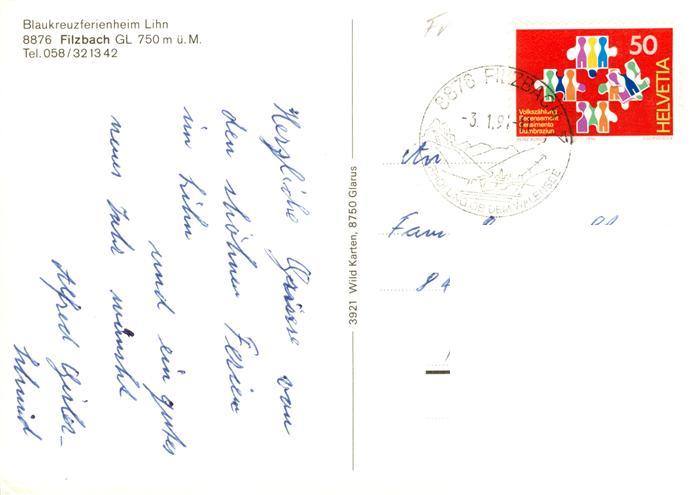 Blaukreuzferienheim Lihn
8876 Filzbach GL 750 m ü. M.
Tel. 058/32 13 42
Herzliche Grüsse von
den schönen Ferien
im Lihn
und ein gutes
neues Jahr wünscht
Alfred
Schmid
3921 Wild Karten, 8750 Glarus
8876 FILZBACH
-3.1.91-
50
HELVETIA
Volkszählung
Recensement
Censimento
An
Fam
84